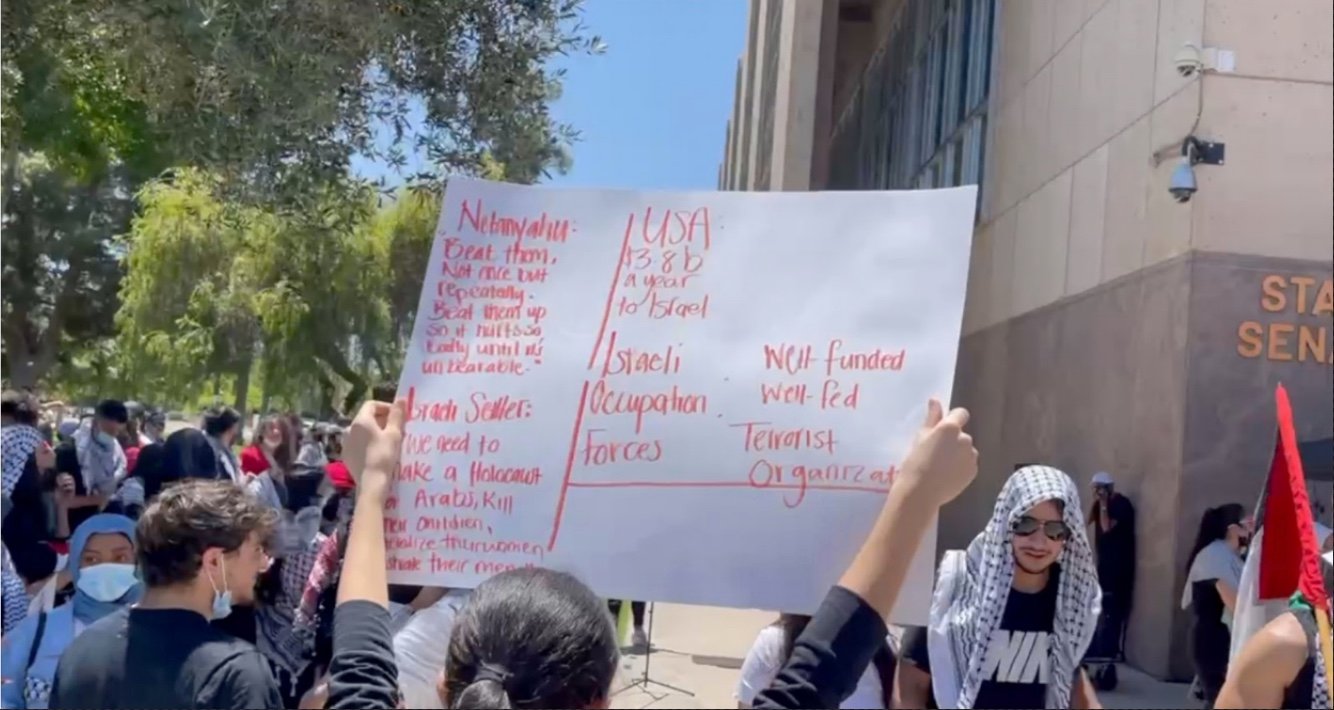 Netanyahu:
Beat them,
Not once but
repeatedly.
Beat them up
so it hurts so
badly until it's
unbearable."
Settler:
"We need to
make a Holocaust
Arabs, Kill
their children,
their women
their men
USA
$3.8b
a year
to Israel
Israeli
Occupation
Forces
Well-funded
Well-fed
Terrorist
Organizat
STA
SEN
NIK